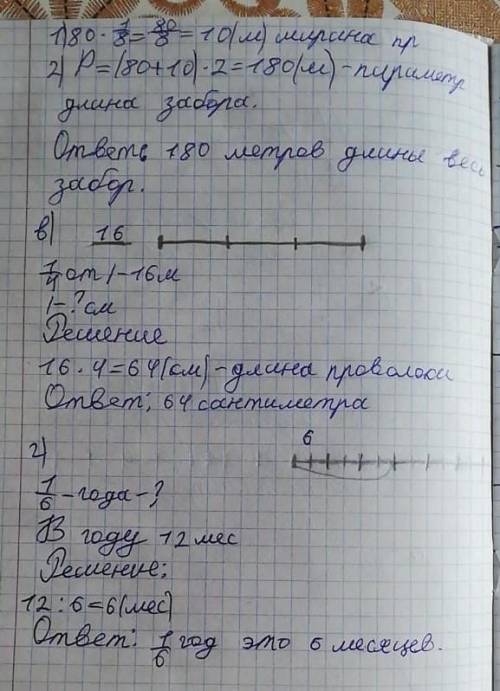 1) 80 · 1/8 = 80/8 = 10 (м) ширина пр
2) P = (80+10) · 2 = 180 (м) - пириметр
длина забора.
Ответ: 180 метров длины весь
забор.
в) 16
1/4 от l - 16 м
l - ? см
Решение
16 · 4 = 64 (см) - длина проволоки
Ответ: 64 сантиметра
6
г)
1/6 - года - ?
В году 12 мес
Решение:
12 : 6 = 6 (мес)
Ответ: 1/6 год это 6 месяцев.